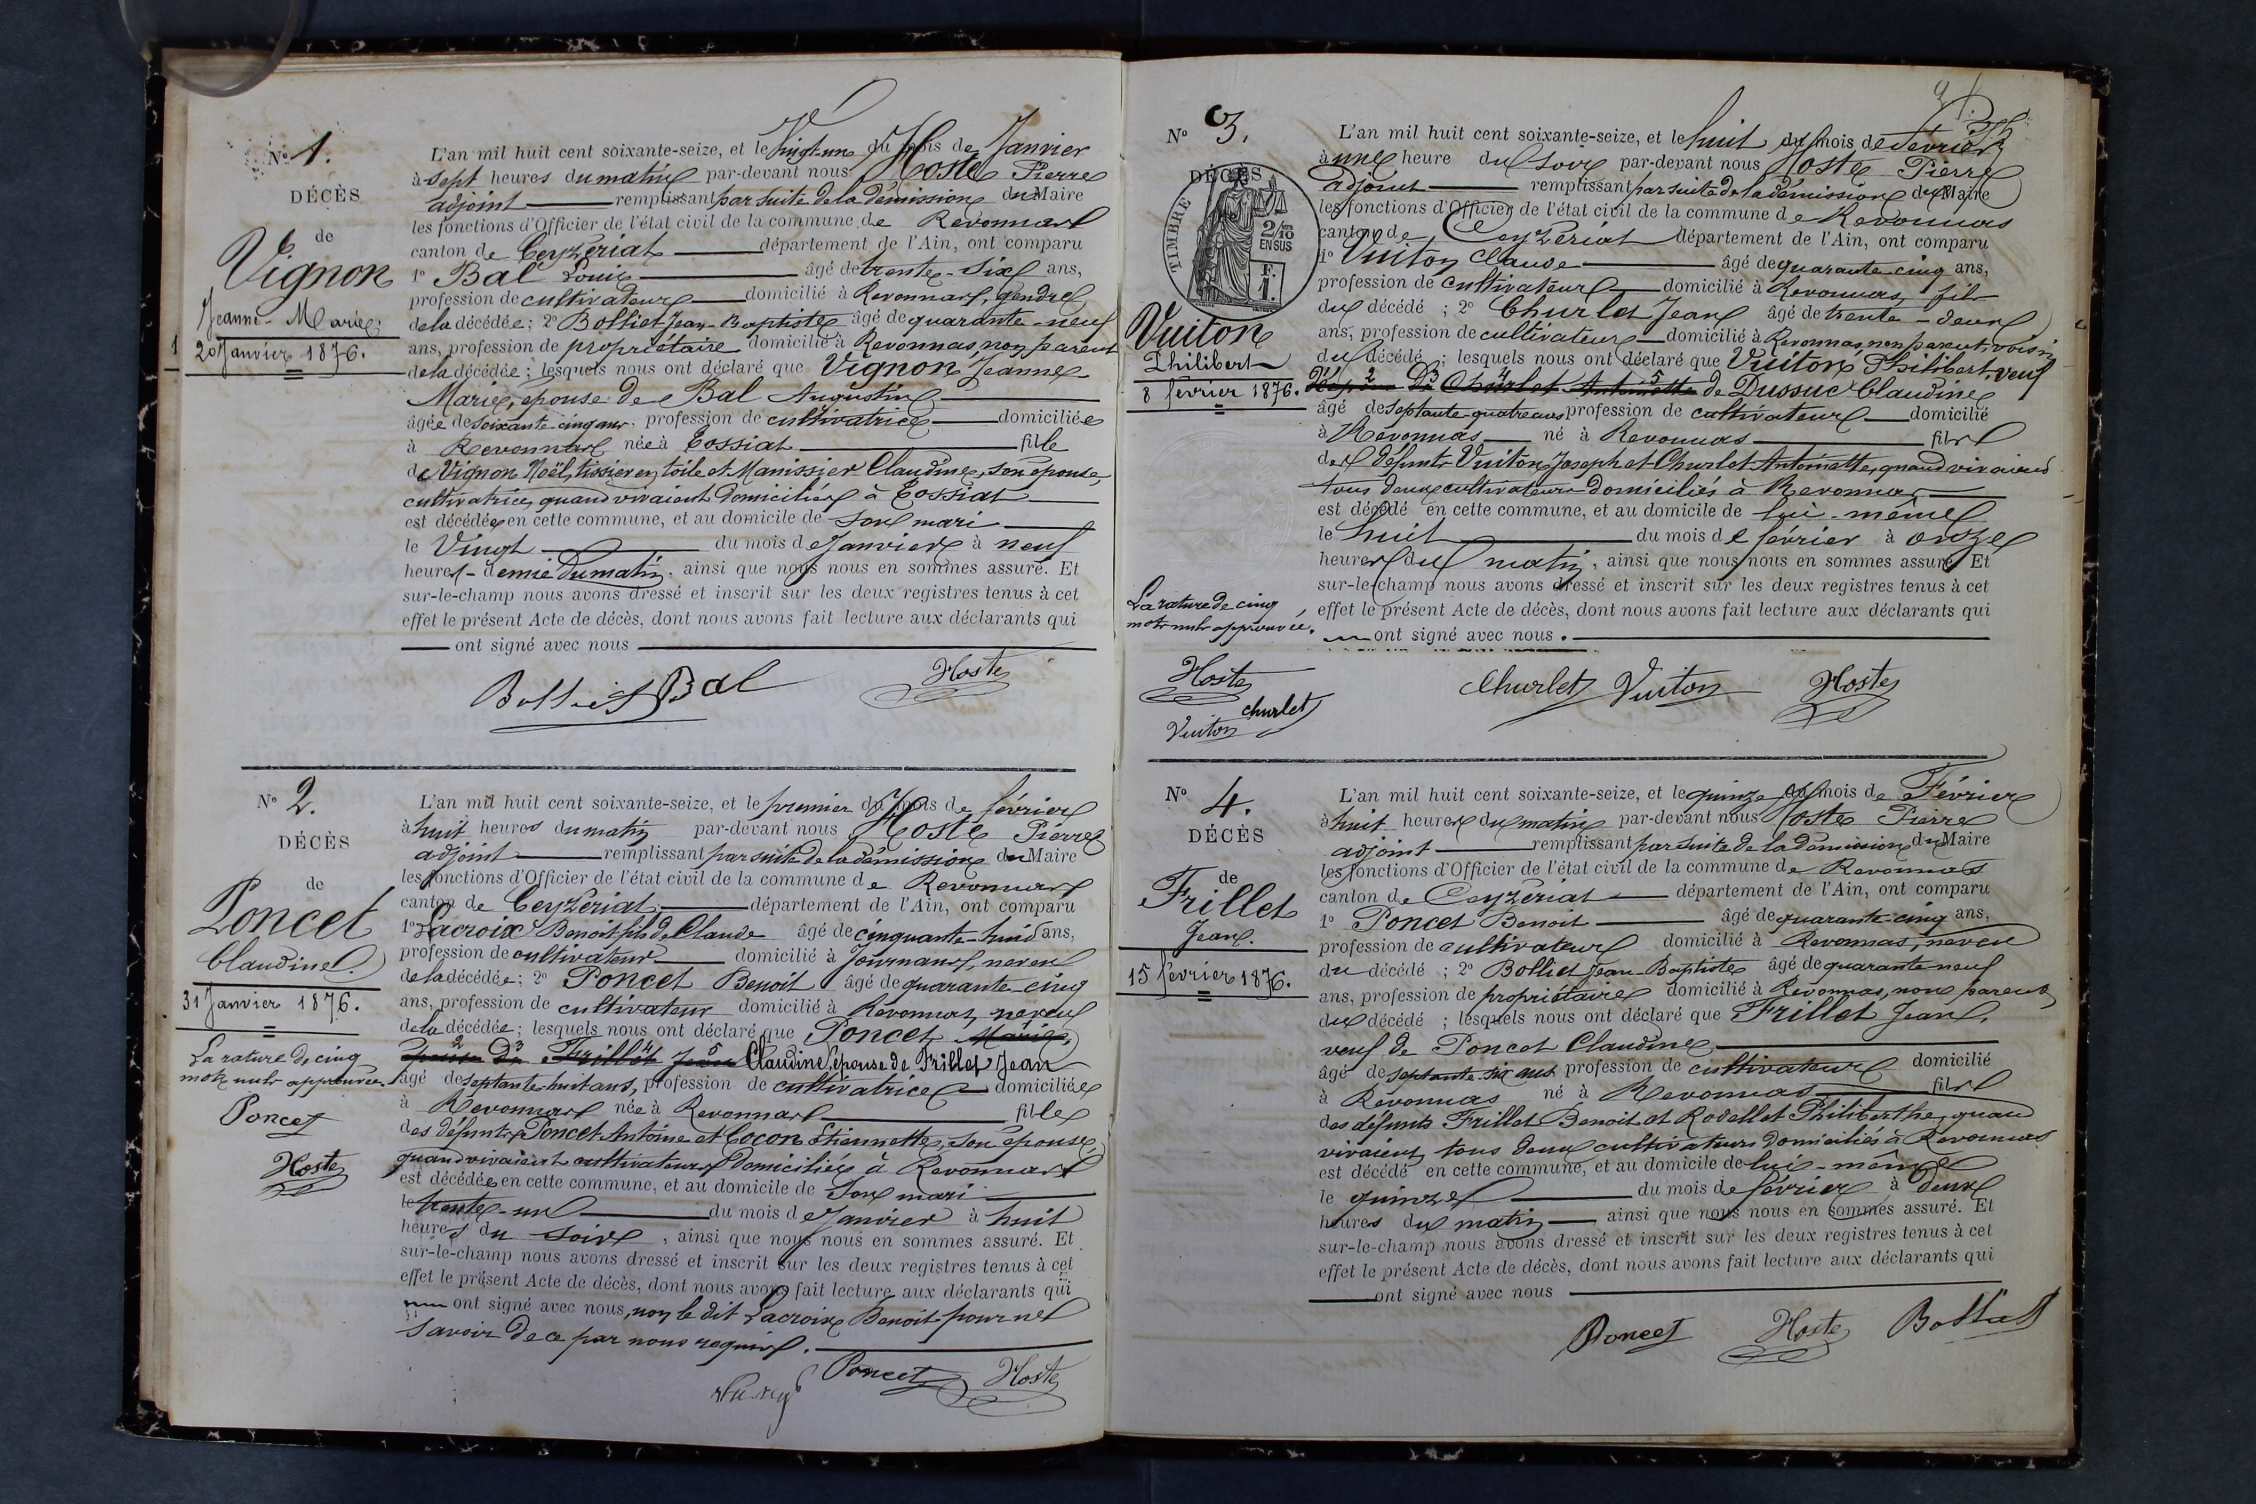 N° 1.
DÉCÈS
de
Vignon
Jeanne-Marie,
20 Janvier 1876.
L'an mil huit cent soixante-seize, et le Vingt-un du mois de Janvier
à sept heures du matin par-devant nous Hoste Pierre
adjoint remplissant par suite de la démission du Maire
les fonctions d'Officier de l'état civil de la commune de Revonnas
canton de Ceyzériat département de l'Ain, ont comparu
1° Bal Louis âgé de trente-six ans,
profession de cultivateur domicilié à Revonnas, gendre
de la décédée ; 2° Bolliet Jean-Baptiste âgé de quarante-neuf
ans, profession de propriétaire domicilié à Revonnas, non parent
de la décédée ; lesquels nous ont déclaré que Vignon Jeanne
Marie, épouse de Bal Augustin
âgée de soixante-cinq ans, profession de cultivatrice domiciliée
à Revonnas née à Tossiat fille
de Vignon Noël, tissier en toile et Manissier Claudine, son épouse,
cultivatrice, quand vivaient domiciliés à Tossiat
est décédée en cette commune, et au domicile de son mari
le Vingt du mois de Janvier à neuf
heures-demie du matin, ainsi que nous nous en sommes assuré. Et
sur-le-champ nous avons dressé et inscrit sur les deux registres tenus à cet
effet le présent Acte de décès, dont nous avons fait lecture aux déclarants qui
ont signé avec nous
Bolliet Bal Hoste
N° 2.
DÉCÈS
de
Poncet
Claudine.
31 Janvier 1876.
La rature de cinq
mots nuls approuvée.
Poncet
Hoste
L'an mil huit cent soixante-seize, et le premier du mois de février
à huit heures du matin par-devant nous Hoste Pierre
adjoint remplissant par suite de la démission du Maire
les fonctions d'Officier de l'état civil de la commune de Revonnas
canton de Ceyzériat département de l'Ain, ont comparu
1° Lacroix Benoit fils de Claude âgé de cinquante-huit ans,
profession de cultivateur domicilié à Journans, neveu
de la décédée ; 2° Poncet Benoit âgé de quarante-cinq
ans, profession de cultivateur domicilié à Revonnas, neveu
de la décédée ; lesquels nous ont déclaré que Poncet Marie,
épouse De Frillet Jean Claudine, épouse de Frillet Jean
âgé de septante-huit ans, profession de cultivatrice domiciliée
à Revonnas née à Revonnas fille
des défunts Poncet Antoine et Cocon Etiennette, son épouse,
quand vivaient cultivateurs domiciliés à Revonnas
est décédée en cette commune, et au domicile de son mari
le trente-un du mois de Janvier à huit
heures du soir, ainsi que nous nous en sommes assuré. Et
sur-le-champ nous avons dressé et inscrit sur les deux registres tenus à cet
effet le présent Acte de décès, dont nous avons fait lecture aux déclarants qui
ont signé avec nous, non le dit Lacroix Benoit pour ne
savoir de ce par nous requis.
Poncet Hoste
N° 3.
DÉCÈS
TIMBRE
2/10 EN SUS
F. 1.
Vuiton
Philibert
8 février 1876.
La rature de cinq
mots nuls approuvée.
Hoste
churlet
Vuiton
L'an mil huit cent soixante-seize, et le huit du mois de février
à une heure du soir par-devant nous Hoste Pierre
adjoint remplissant par suite de la démission du Maire
les fonctions d'Officier de l'état civil de la commune de Revonnas
canton de Ceyzériat département de l'Ain, ont comparu
1° Vuiton Claude âgé de quarante-cinq ans,
profession de cultivateur domicilié à Revonnas, fils
du décédé ; 2° Churlet Jean âgé de trente-deux
ans, profession de cultivateur domicilié à Revonnas, non parent, voisin
du décédé ; lesquels nous ont déclaré que Vuiton Philibert, veuf
De Churlet Antoinette de Dussuc Claudine
âgé de septante-quatre ans profession de cultivateur domicilié
à Revonnas né à Revonnas fils
des défunts Vuiton Joseph et Churlet Antoinette, quand vivaient
tous deux cultivateurs domiciliés à Revonnas
est décédé en cette commune, et au domicile de lui-même
le huit du mois de février à onze
heures du matin, ainsi que nous nous en sommes assuré. Et
sur-le-champ nous avons dressé et inscrit sur les deux registres tenus à cet
effet le présent Acte de décès, dont nous avons fait lecture aux déclarants qui
ont signé avec nous.
Churlet Vuiton Hoste
N° 4.
DÉCÈS
de
Frillet
Jean.
15 février 1876.
L'an mil huit cent soixante-seize, et le quinze du mois de Février
à huit heures du matin par-devant nous Hoste Pierre
adjoint remplissant par suite de la démission du Maire
les fonctions d'Officier de l'état civil de la commune de Revonnas
canton de Ceyzériat département de l'Ain, ont comparu
1° Poncet Benoit âgé de quarante-cinq ans,
profession de cultivateur domicilié à Revonnas, neveu
du décédé ; 2° Bolliet Jean-Baptiste âgé de quarante neuf
ans, profession de propriétaire domicilié à Revonnas, non parent
du décédé ; lesquels nous ont déclaré que Frillet Jean,
veuf de Poncet Claudine
âgé de septante-six ans profession de cultivateur domicilié
à Revonnas né à Revonnas fils
des défunts Frillet Benoit et Rodellet Philiberthe, quand
vivaient, tous deux cultivateurs domiciliés à Revonnas
est décédé en cette commune, et au domicile de lui-même
le quinze du mois de février à deux
heures du matin ainsi que nous nous en sommes assuré. Et
sur-le-champ nous avons dressé et inscrit sur les deux registres tenus à cet
effet le présent Acte de décès, dont nous avons fait lecture aux déclarants qui
ont signé avec nous
Poncet Hoste Bolliet